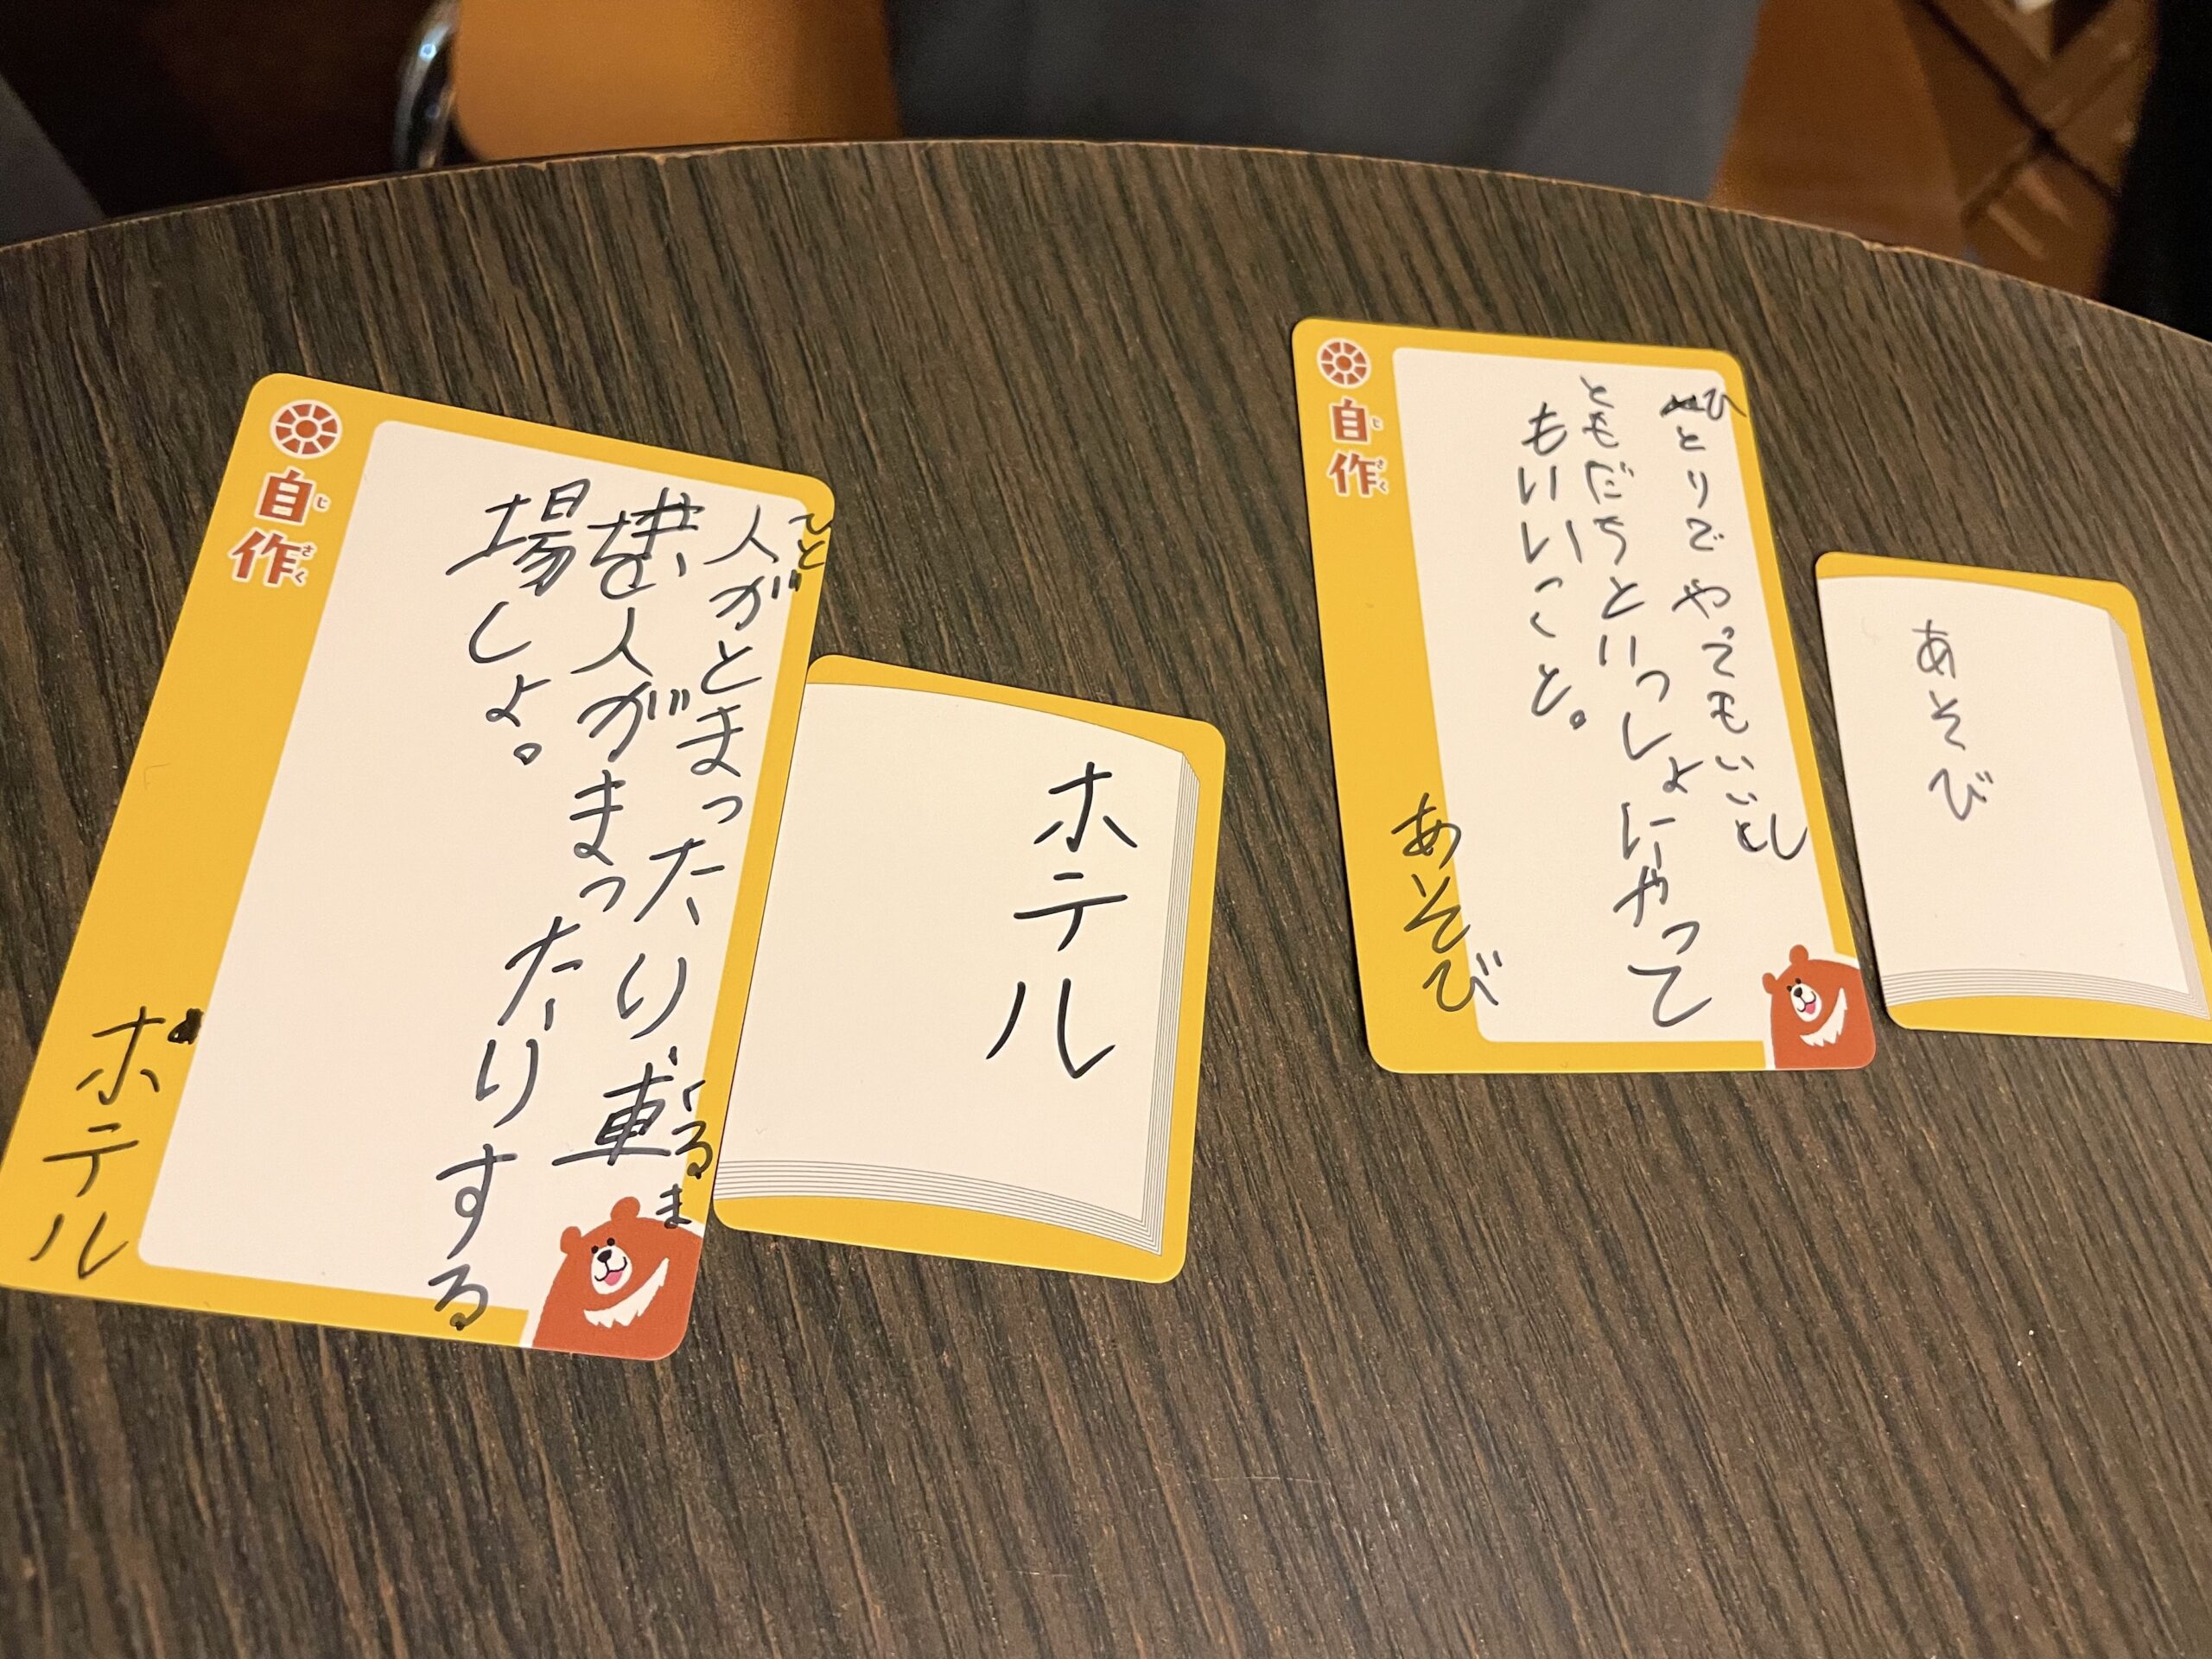 自作
じさく
ひと
人がとまったり、車
くるま
を人がまったりする
場しょ。
ホテル
ホテル
自作
じさく
ひとりでやってもいいし
ともだちといっしょにやって
もいいこと。
あそび
あそび